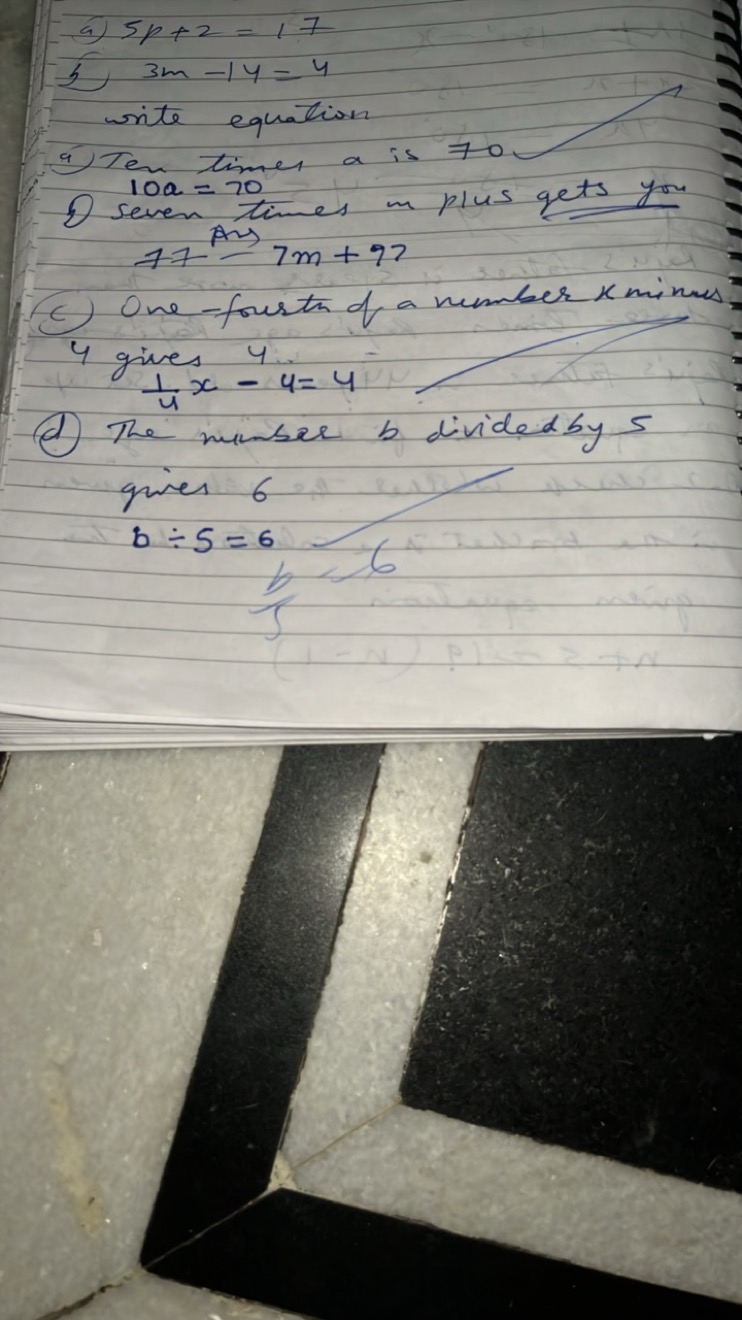 a) 5p+2 = 17
b) 3m - 14 = 4
write equation
a) Ten times a is 70
10a = 70
b) seven times m plus gets you
77 Ans 7m + 97
c) One-fourth of a number x minus
4 gives 4
1/4 x - 4 = 4
d) The number b divided by 5
gives 6
b ÷ 5 = 6
b/5 = 6